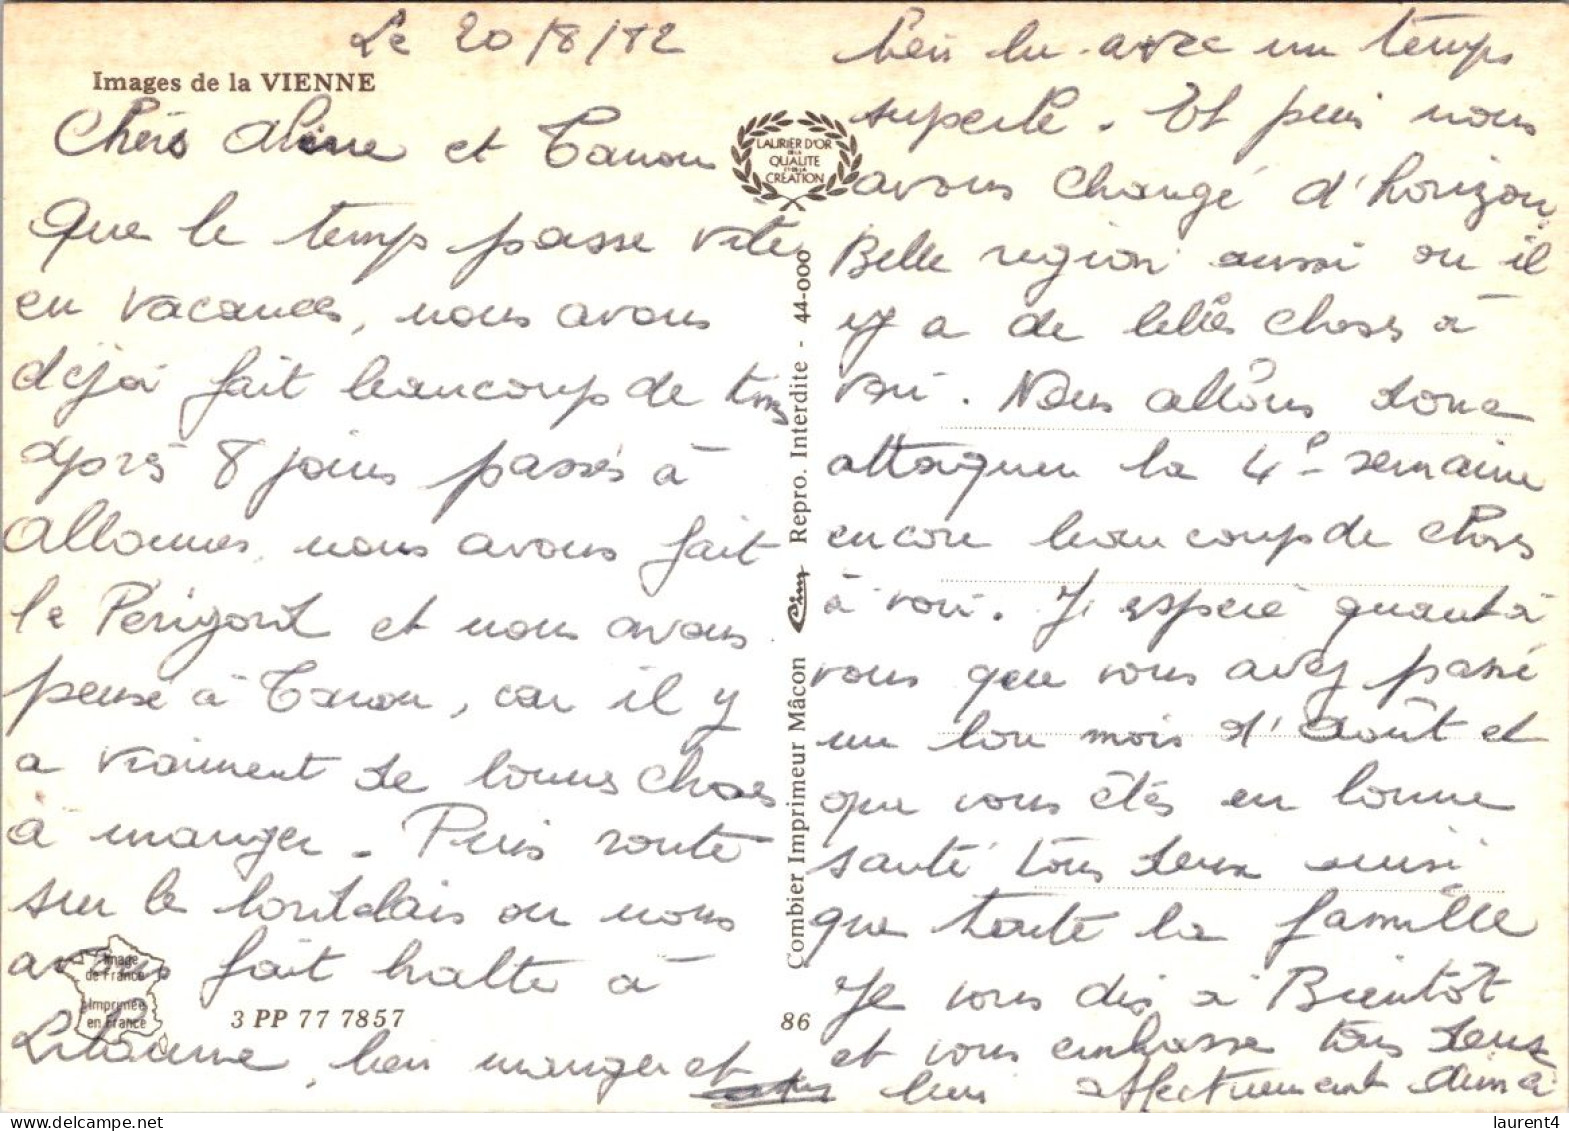 Le 20/8/82
Images de la VIENNE
Chers Aline et Tanou
Que le temps passe vite
en vacances, nous avons
déjà fait beaucoup de kms
après 8 jours passés à
Allonnes, nous avons fait
le Périgord et nous avons
pensé à Tanou, car il y
a vraiment de bonnes choses
à manger. Puis route
sur le bordelais ou nous
avons fait halte à
Libourne, bien manger et
bien bu avec un temps
superbe. Et puis nous
avons changé d'horizon
Belle region aussi ou il
y a de belles choses à
voir. Nous allons donc
attaquer la 4e semaine
encore beaucoup de choses
à voir. J'espère quant à
vous que vous avez passé
un bon mois d'Août et
que vous étés en bonne
santé tous deux ainsi
que toute la famille
Je vous dis à Bientôt
et vous embrasse tous deux
bien affectueusement
LAURIER D'OR
DE LA
QUALITE
ET DE LA
CRÉATION
Combier Imprimeur Mâcon Cim Repro. Interdite - 44-000
Image
de France
Imprimée
en France
3 PP 77 7857
86
laurent4